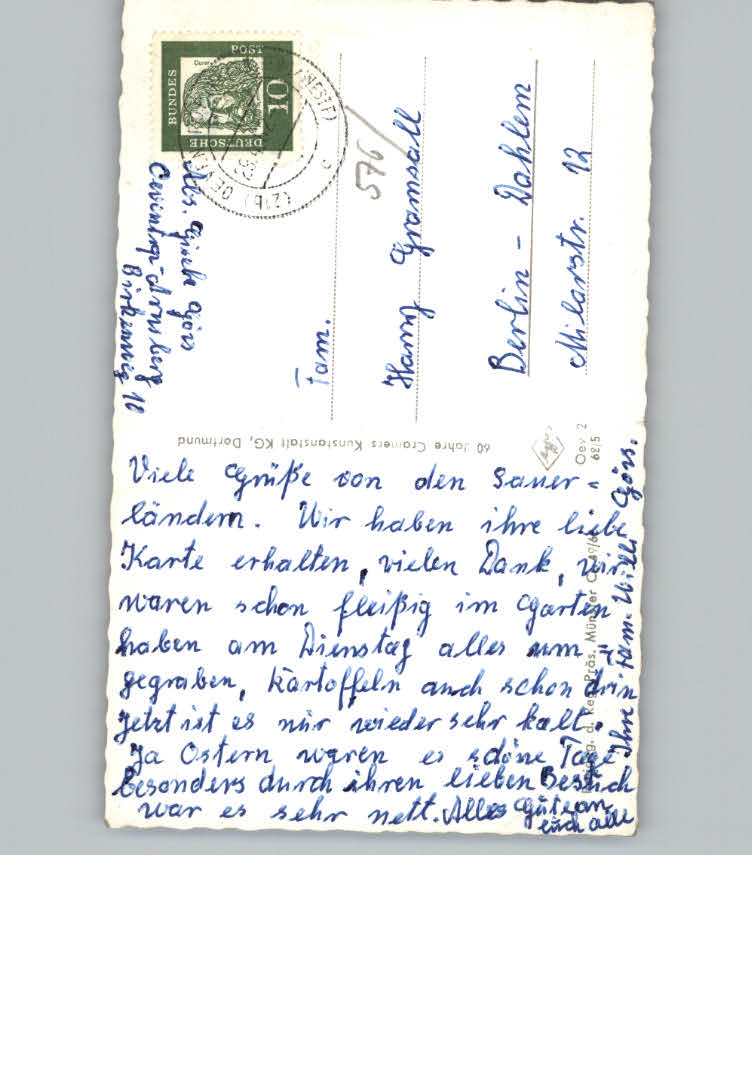 Viele Grüße von den Sauer=
ländern. Wir haben ihre liebe
Karte erhalten, vielen Dank, wir
waren schon fleißig im Garten
haben am Dienstag alles um=
gegraben, Kartoffeln auch schon drin
Jetzt ist es nur wieder sehr kalt.
Ja Ostern waren es schöne Tage
besonders durch ihren lieben Besuch
war es sehr nett. Alles Gute an
euch alle
Ihre Fam. Willi Görs.
Abs. Gisela Görs
Oeventrop-Arnsberg
Birkenweg 10
Fam.
Hang Gramsall
Berlin - Dahlem
Milarstr. 12
576/
DEUTSCHE
BUNDES
POST
10
(21b)
(WESTF)
60 Jahre Cramers Kunstanstalt KG, Dortmund
Oev 2
62/5